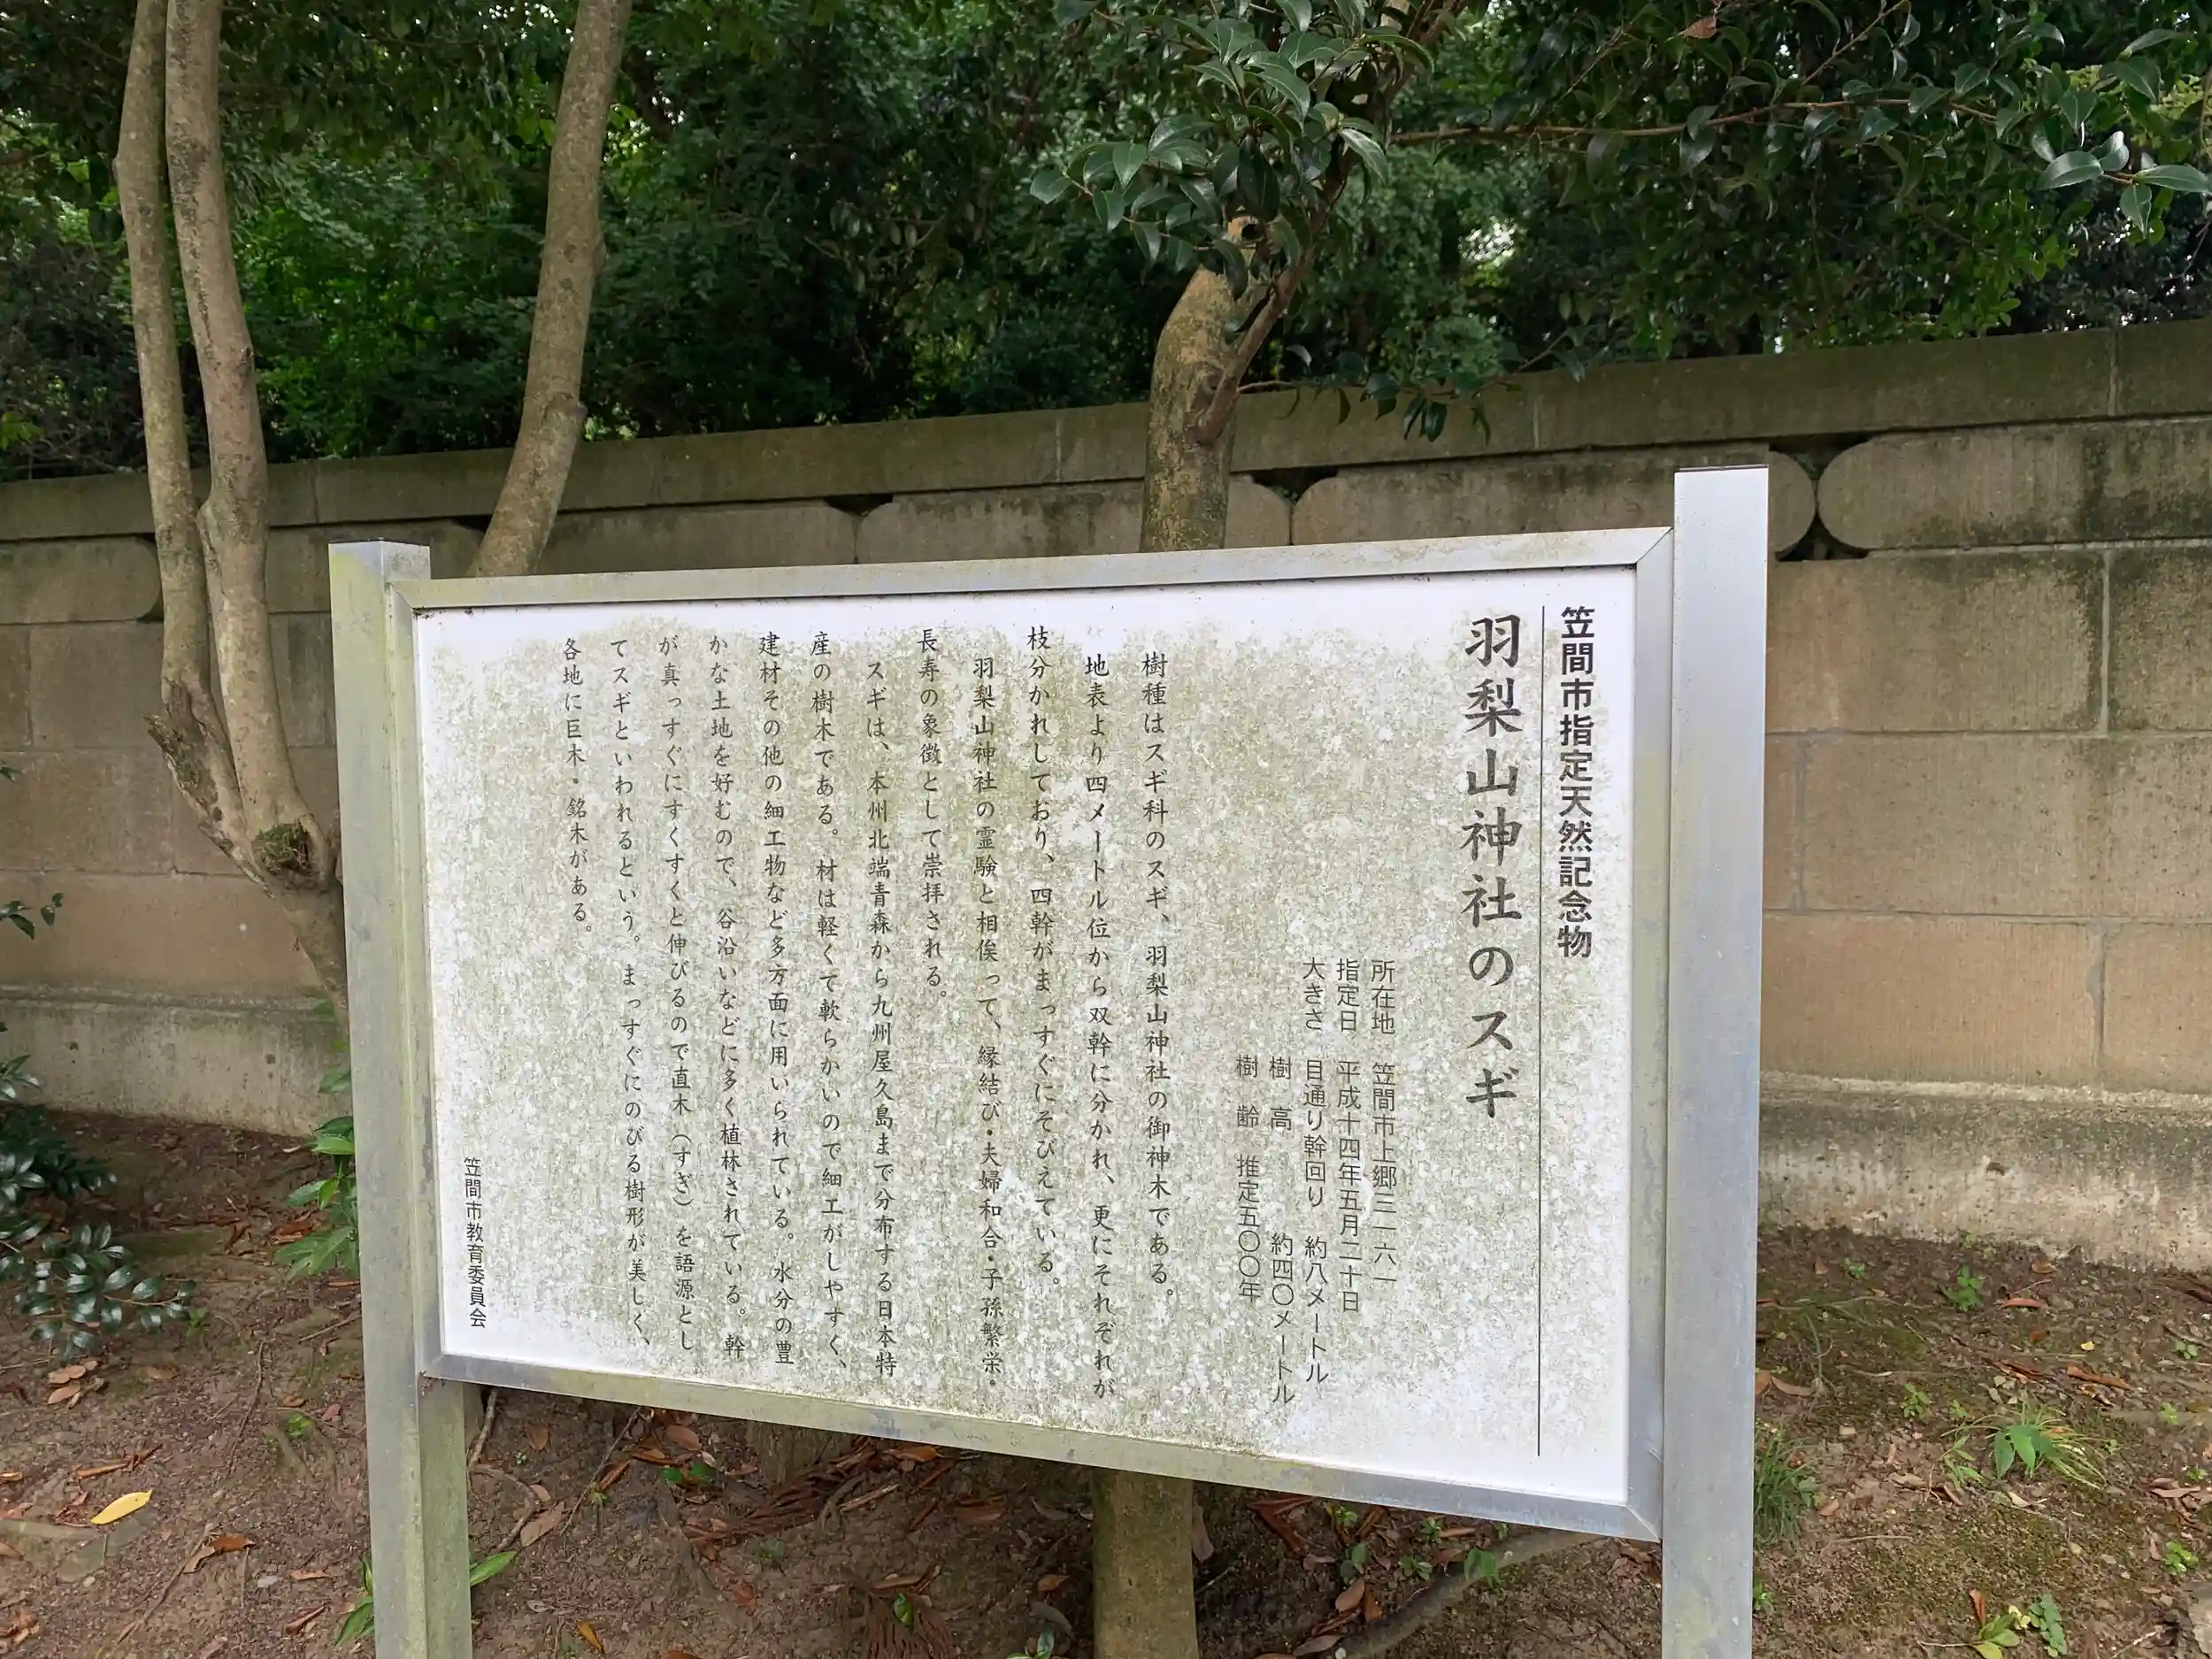 笠間市指定天然記念物
羽梨山神社のスギ
所在地 笠間市上郷三一六一
指定日 平成十四年五月二十日
大きさ 目通り幹回り 約八メートル
樹高 約四〇メートル
樹齢 推定五〇〇年
樹種はスギ科のスギ、羽梨山神社の御神木である。
地表より四メートル位から双幹に分かれ、更にそれぞれが
枝分かれしており、四幹がまっすぐにそびえている。
羽梨山神社の霊験と相俟って、縁結び・夫婦和合・子孫繁栄・
長寿の象徴として崇拝される。
スギは、本州北端青森から九州屋久島まで分布する日本特
産の樹木である。材は軽くて軟らかいので細工がしやすく、
建材その他の細工物など多方面に用いられている。水分の豊
かな土地を好むので、谷沿いなどに多く植林されている。幹
が真っすぐにすくすくと伸びるので直木（すぎ）を語源とし
てスギといわれるという。まっすぐにのびる樹形が美しく、
各地に巨木・銘木がある。
笠間市教育委員会